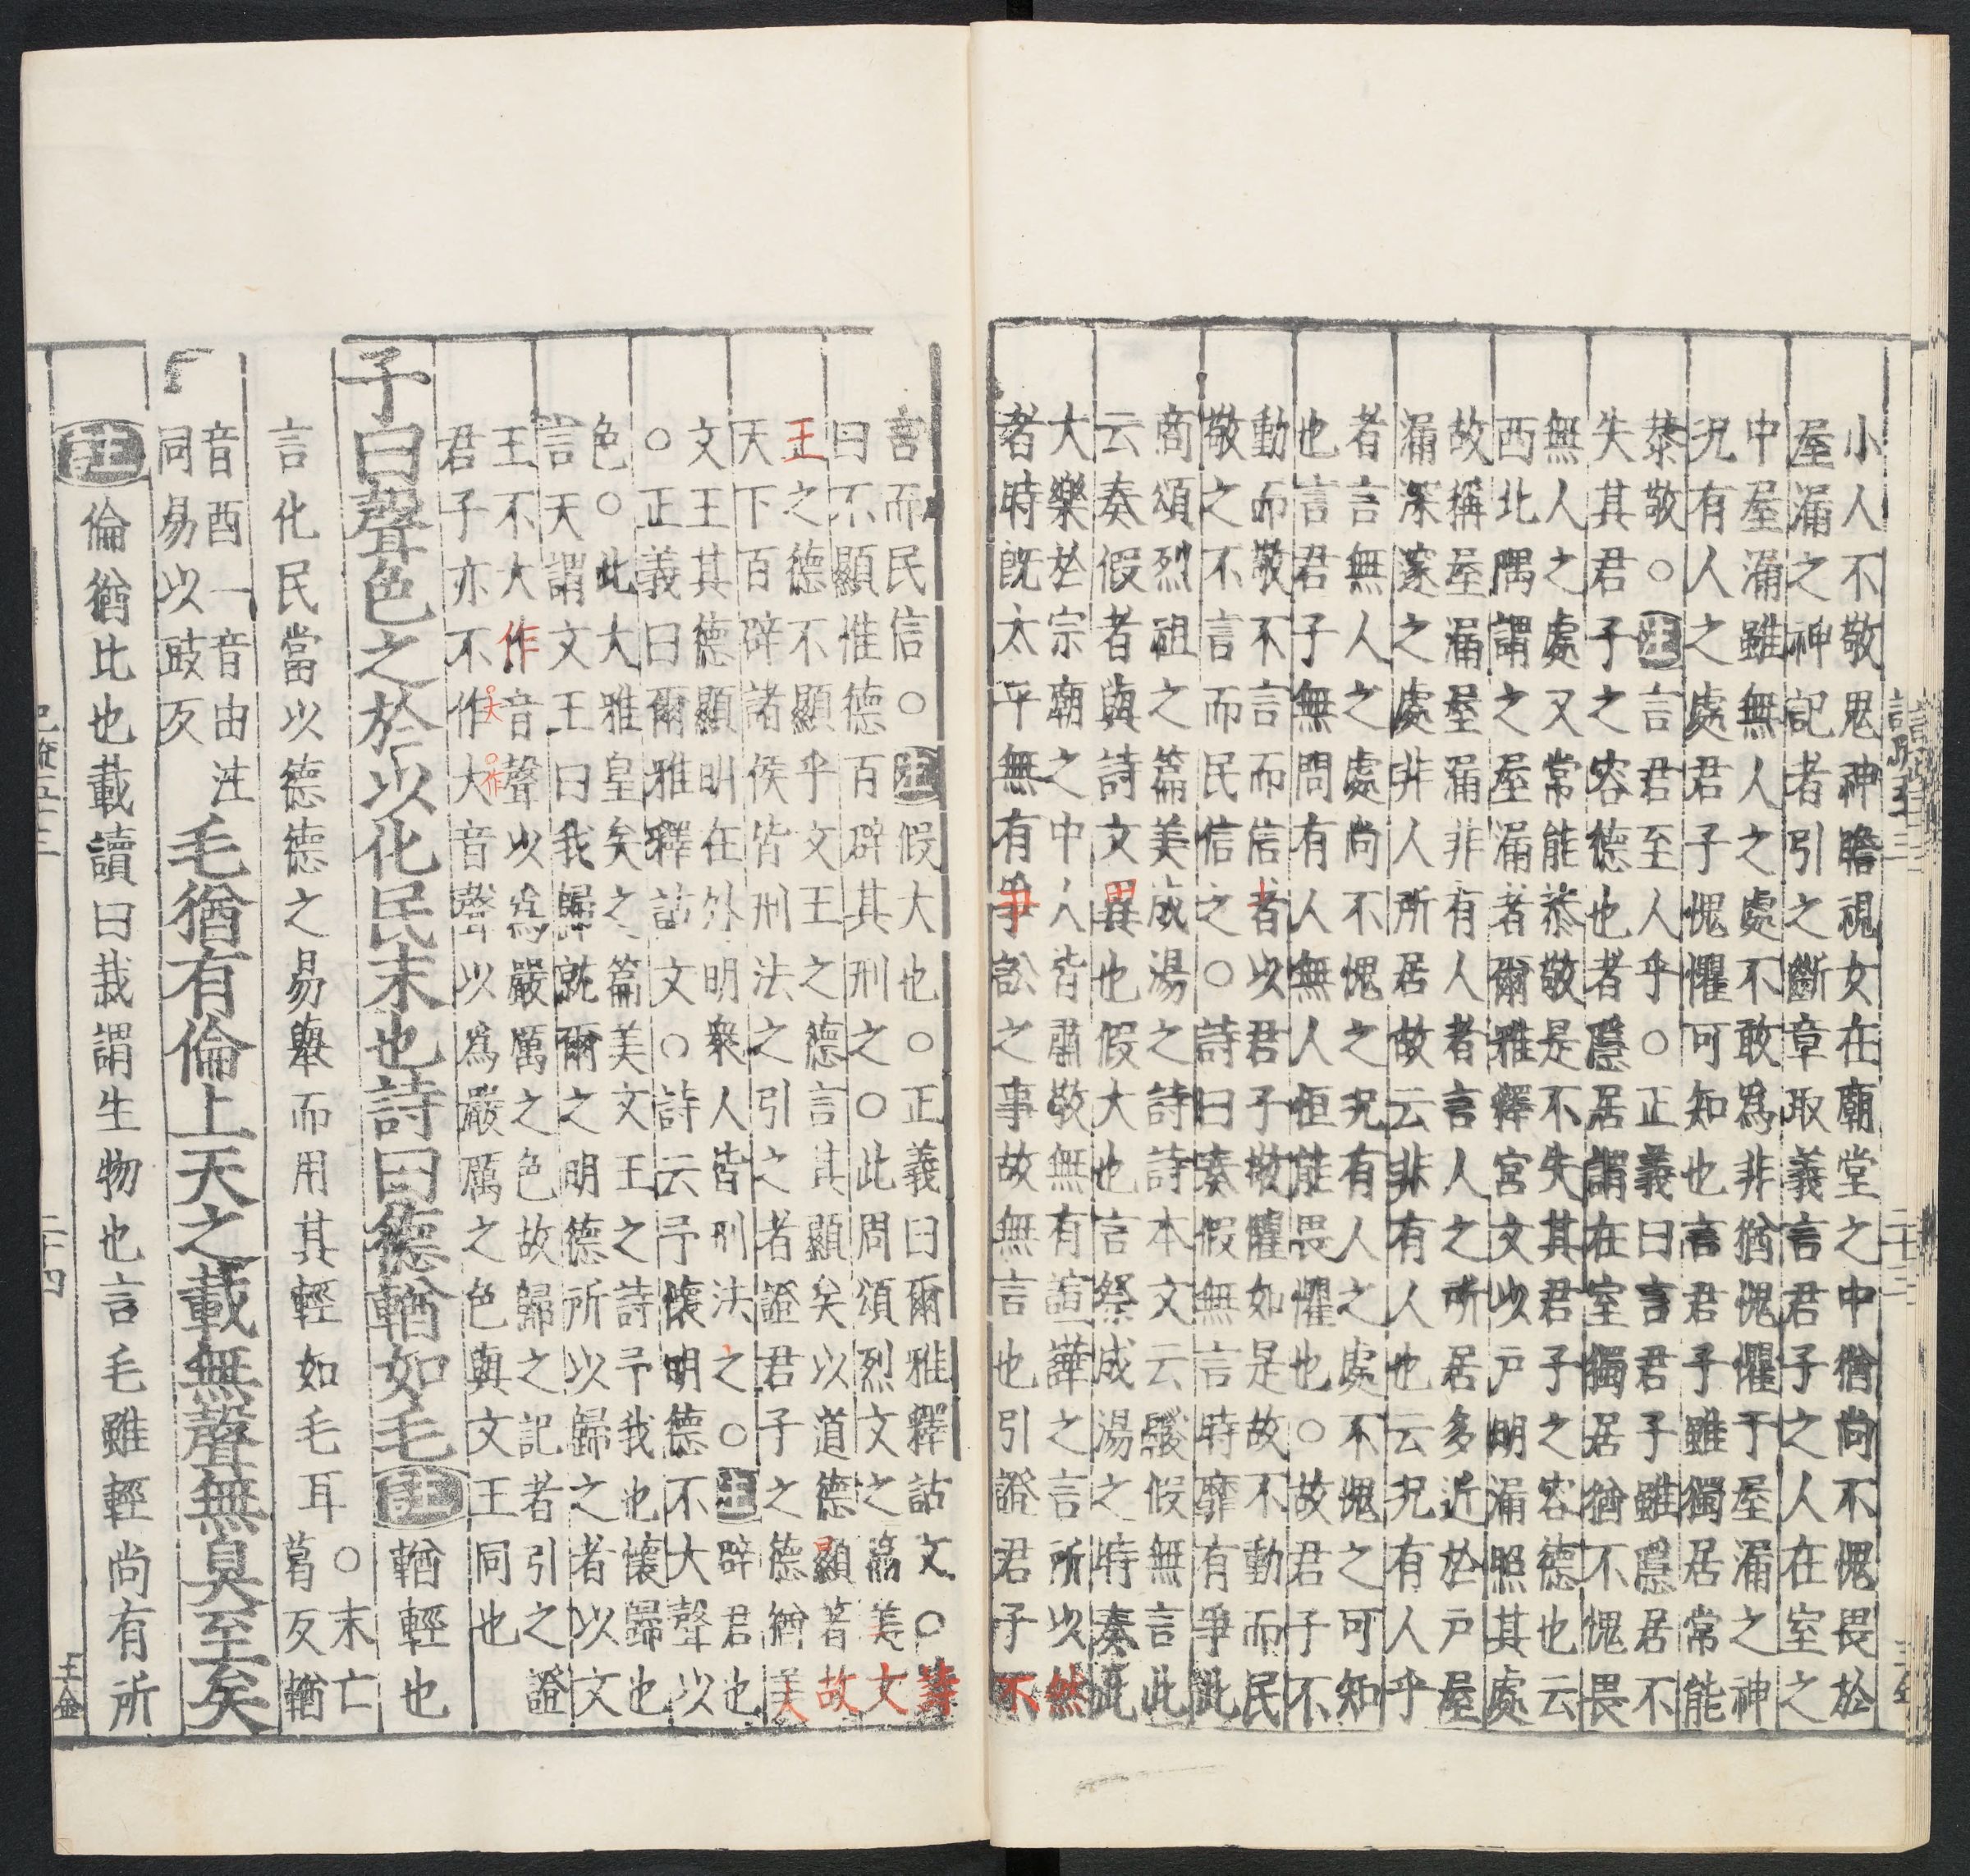 小人不敬鬼神瞻視女在廟堂之中猶尚不愧畏於
屋漏之神記者引之斷章取義言君子之人在室之
中屋漏雖無人之處不敢為非猶愧懼于屋漏之神
況有人之處君子愧懼可知也言君子雖獨居常能
㳟敬○注言君至人乎○正義曰言君子雖隱居不
失其君子之容德也者隱居謂在室獨居猶不愧畏
無人之處又常能㳟敬是不失其君子之容德也云
西北隅謂之屋漏者爾雅釋宮文以戶明漏照其處
故稱屋漏屋漏非有人者言人之所居多近於戶屋
漏深邃之處非人所居故云非有人也云況有人乎
者言無人之處尚不愧之況有人之處不愧之可知
也言君子無問有人無人恒能畏懼也○故君子不
動而敬不言而信者以君子敬懼如是故不動而民
敬之不言而民信之○詩曰奏假無言時靡有爭此
商頌烈祖之篇美成湯之詩詩本文云鬷假無言此
云奏假者與詩文異也假大也言祭成湯之時奏此
大樂於宗廟之中人皆肅敬無有諠譁之言所以然
者時既太平無有爭訟之事故無言也引證君子不
言而民信○注假大也○正義曰爾雅釋詁文○詩
曰不顯惟德百辟其刑之○此周頌烈文之篇美文
王之德不顯乎文王之德言其顯矣以道德顯著故
天下百辟諸侯皆刑法之引之者證君子之德猶美
文王其德顯明在外明衆人皆刑法之○注辟君也
○正義曰爾雅釋詁文○詩云予懷明德不大聲以
色○此大雅皇矣之篇美文王之詩予我也懷歸也
言天謂文王曰我歸就爾之明德所以歸之者以文
王不大作音聲以為嚴厲之色故歸之記者引之證
君子亦不作大音聲以為嚴厲之色與文王同也
子曰聲色之於以化民末也詩曰德輶如毛注輶輕也
言化民當以德德之易舉而用其輕如毛耳○末亡葛反輶
音酉一音由注同易以豉反毛猶有倫上天之載無聲無臭至矣
注倫猶比也載讀曰栽謂生物也言毛雖輕尚有所
二十四
王金